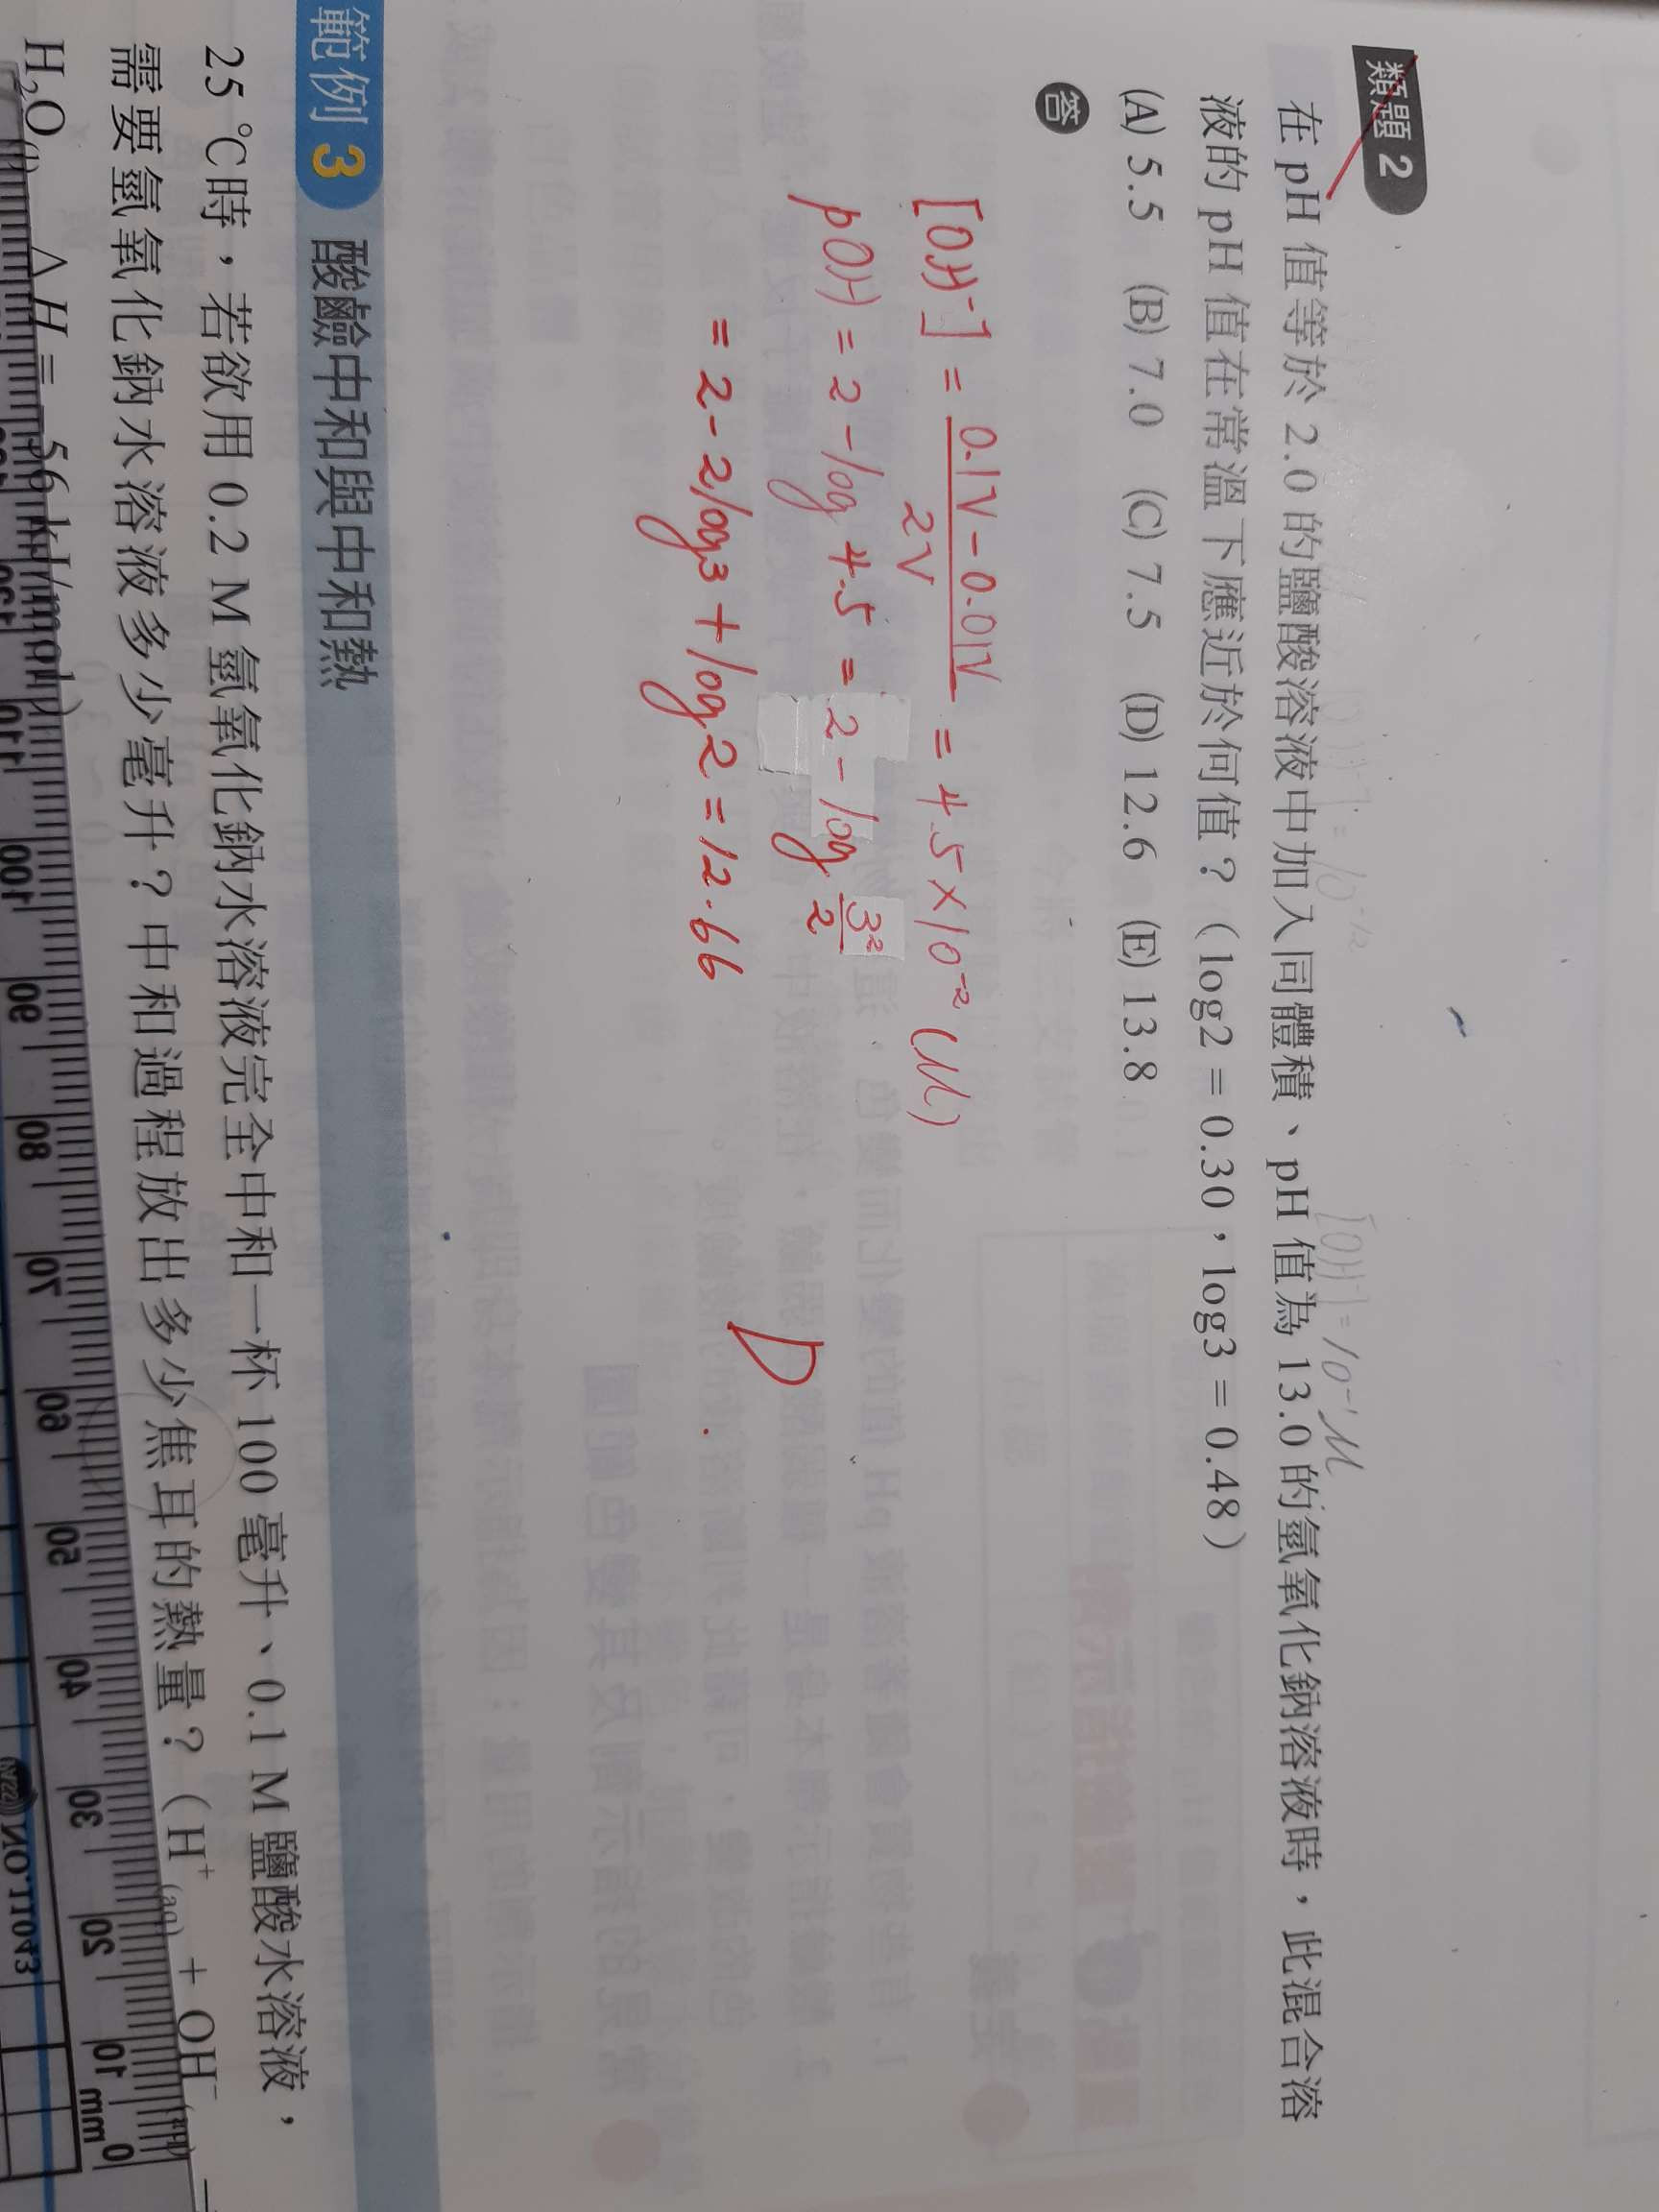 類題 2
在 pH 值等於 2.0 的鹽酸溶液中加入同體積、pH 值為 13.0 的氫氧化鈉溶液時，此混合溶
液的 pH 值在常溫下應近於何值？（log2 = 0.30，log3 = 0.48）
(A) 5.5 (B) 7.0 (C) 7.5 (D) 12.6 (E) 13.8
答
[OH⁻] = 10⁻¹ M
[OH⁻] = 0.1V - 0.01V / 2V = 4.5 × 10⁻² (M)
pOH = 2 - log 4.5 = 2 - log 3²/2
= 2 - 2log3 + log2 = 12.66
D
範例 3 酸鹼中和與中和熱
25 °C時，若欲用 0.2 M 氫氧化鈉水溶液完全中和一杯 100 毫升、0.1 M 鹽酸水溶液，
需要氫氧化鈉水溶液多少毫升？中和過程放出多少焦耳的熱量？（H⁺(aq) + OH⁻(aq)
H₂O(l) ΔH = -56 kJ/mol）
0 mm 10 20 30 40 50 60 70 80 90 100 110
NO.11043